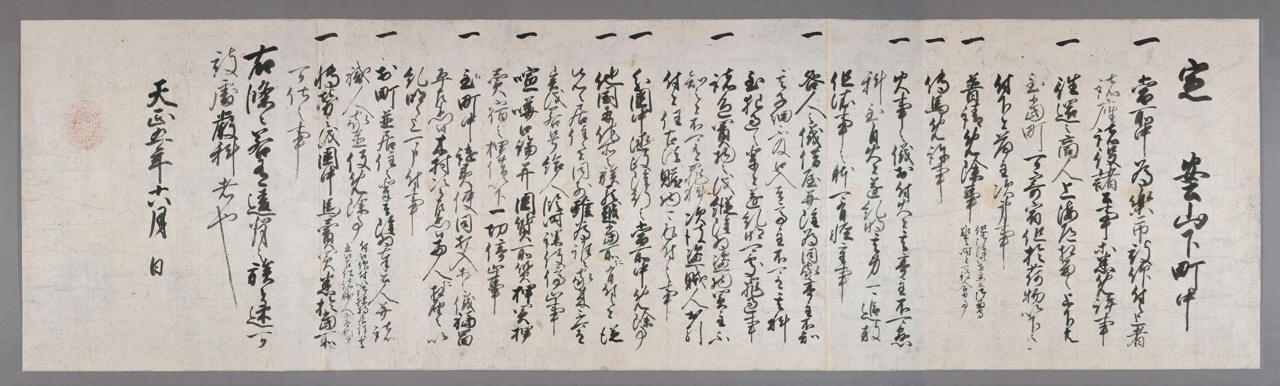 定 安土山下町中
一 当所中為楽市被仰付之上者
諸座諸役諸公事等悉免許事
一 往還之商人上海道相留之上下共
至当町可寄宿但於荷物以下之
付下者荷主次第事
一 普請免除事 但御陣御在京等御留守
難去時者可致合力事
一 伝馬免許事
一 火事之儀於付火者其亭主不可懸
科至自火者遂糺明其身可追放
但依事之躰可有軽重事
一 咎人之儀借屋并雖為同家亭主不知
其子細不及口入者亭主不可有其科
至犯過之輩者遂糺明可処罪過事
一 諸色買物之儀縦雖為盗物買主不
知之者不可有罪科次彼盗賊人於引
付者任古法贓物可返付之事
一 分国中徳政雖行之当所中免除事
一 他国并他所之族罷越当所仁有付候者従
先々居住之者同前雖為誰々家来不可有
異儀若号給人臨時課役停止事
一 喧嘩口論并国質所質押買押
売宿之押借以下一切停止事
一 至町中譴責使同打入等之儀福富
平左衛門尉木村次郎左衛門尉両人仁相届之以
糺明之上可申付事
一 於町並居住之輩者雖為奉公人并諸
職人家並役免除事 付被仰付以御扶持居住之輩
并被召仕諸職人等各別事
一 博労之儀国中馬売買悉於当所
可仕之事
右条々若有違背之族者速可
被処厳科者也
天正五年六月 日